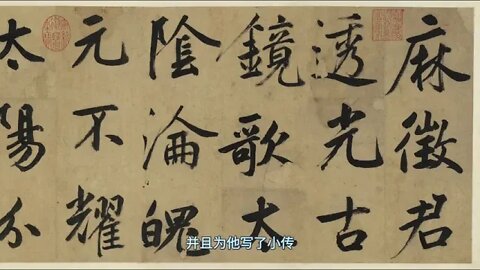 麻徵君
透光古
鏡歌大
陰淪魄
元不耀
太陽分
并且为他写了小传